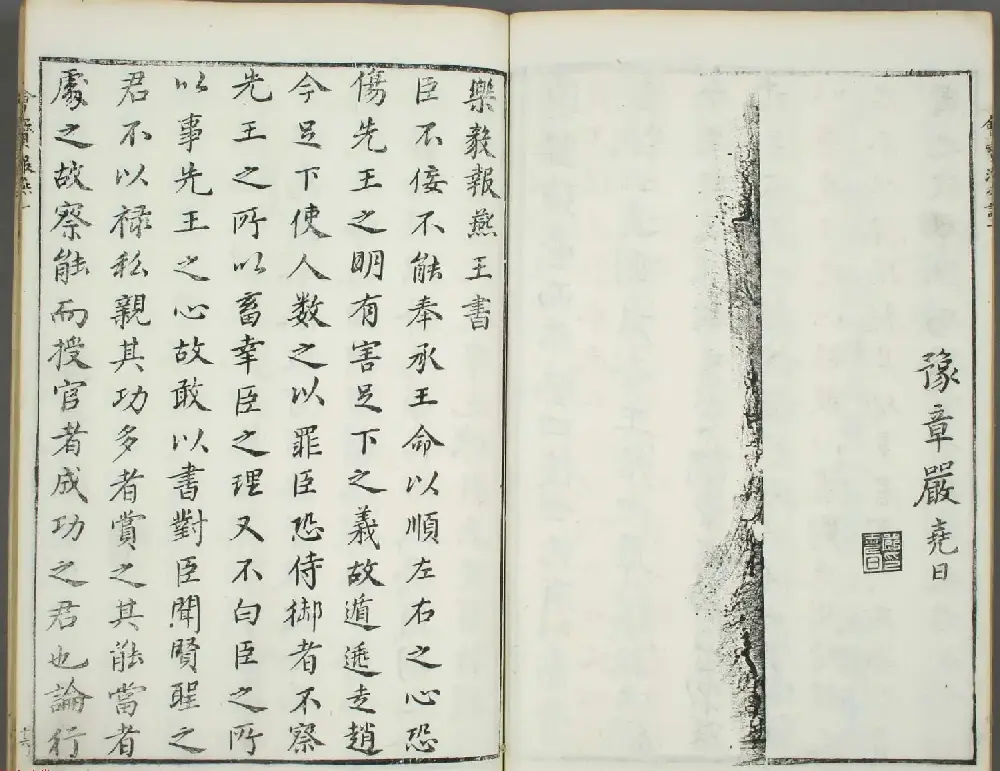 豫章嚴堯日
樂毅報燕王書
臣不佞不能奉承王命以順左右之心恐
傷先王之明有害足下之義故遁逃走趙
今足下使人數之以罪臣恐侍御者不察
先王之所以畜幸臣之理又不白臣之所
以事先王之心故敢以書對臣聞賢聖之
君不以祿私親其功多者賞之其能當者
處之故察能而授官者成功之君也論行